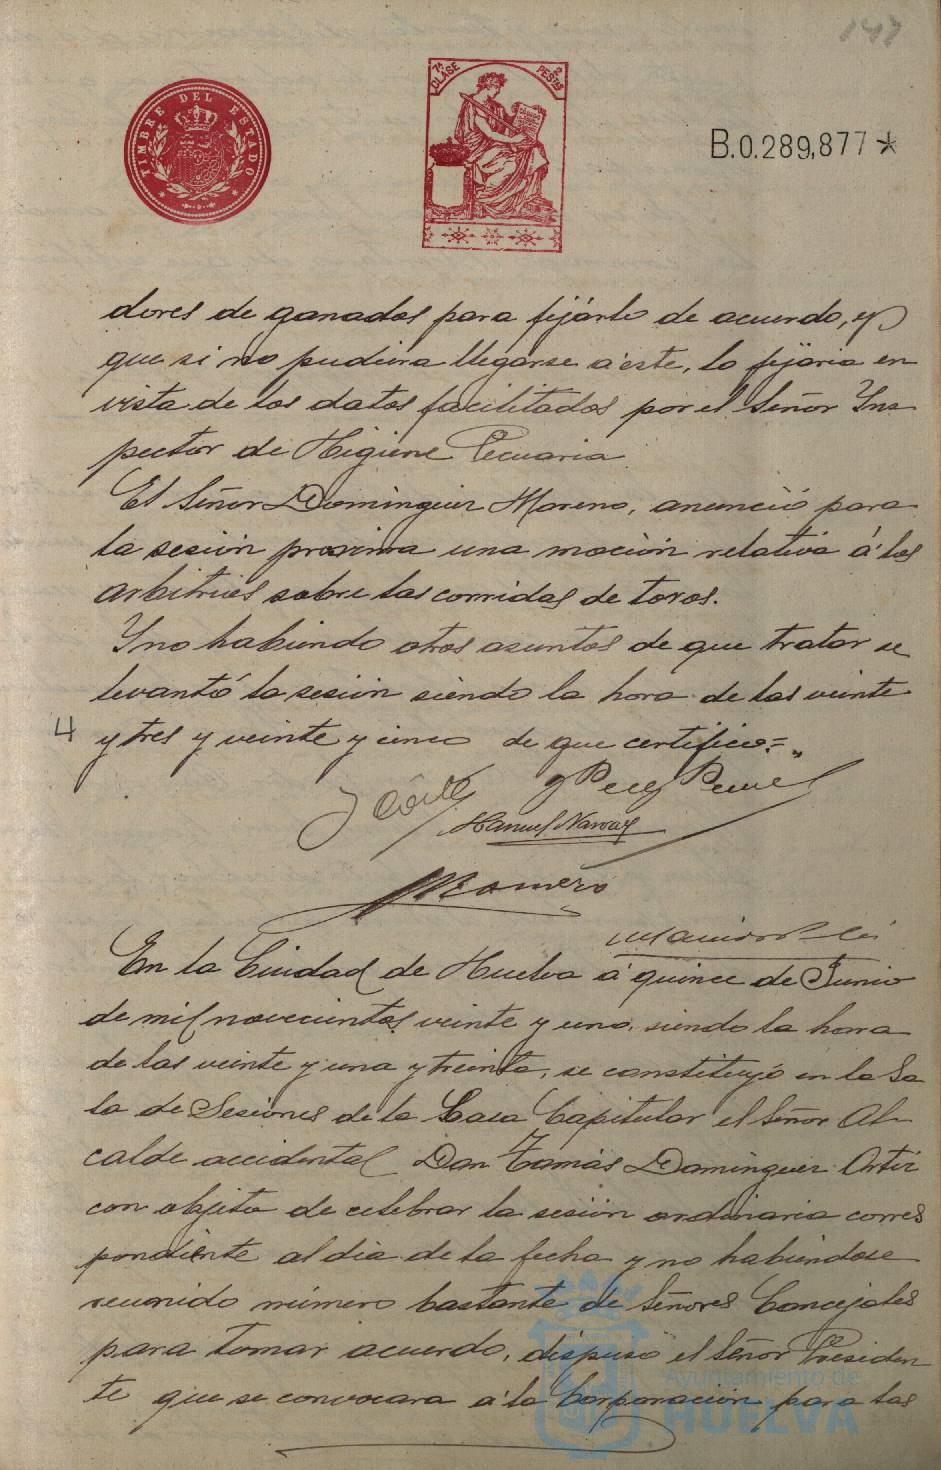 147
TIMBRE DEL ESTADO
7ª CLASE 2 PESTAS
B.0.289,877*
dores de ganados para fijárlo de acuerdo, y
que si no pudiera llegarse á este, lo fijaria en
vista de los datos facilitados por el Señor Ins
pector de Higiene Pecuaria
El Señor Dominguez Moreno, anunció para
la sesión proxima una moción relativa á los
arbitrios sobre las corridas de toros.
Y no habiendo otros asuntos de que tratar se
levantó la sesión siendo la hora de las veinte
4
y tres y veinte y cinco de que certifico=
Manuel Narvaez
Romero
En la Ciudad de Huelva á quince de Junio
de mil novecientos veinte y uno, siendo la hora
de las veinte y una y treinta, se constituyó en la Sa
la de Sesiones de la Casa Capitular el Señor Al-
calde accidental Don Tomás Dominguez Ortiz
con objeto de celebrar la sesión ordinaria corres
pondiente al dia de la fecha y no habiendose
reunido número bastante de Señores Concejales
para tomar acuerdo, dispuso el Señor Presiden
te que se convocara á la Corporación para las
Ayuntamiento de
HUELVA